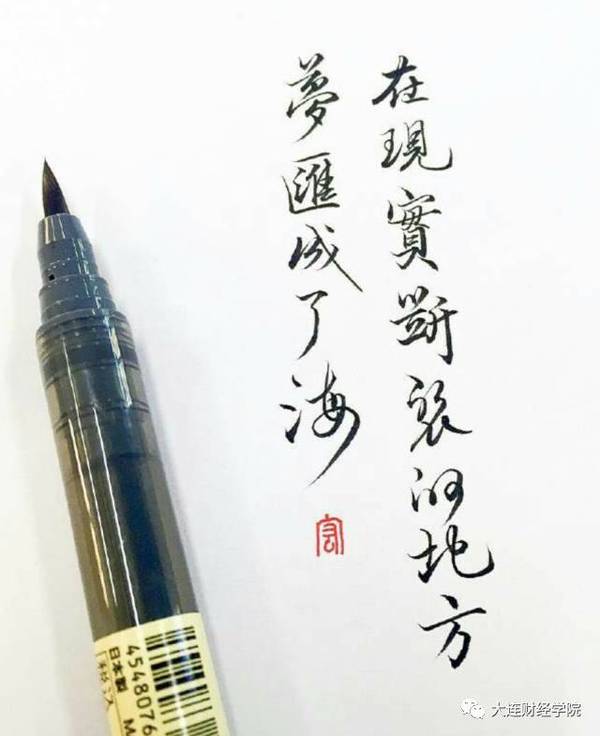 在現實斷裂的地方
夢匯成了海
日本製
4548076
M
大连财经学院